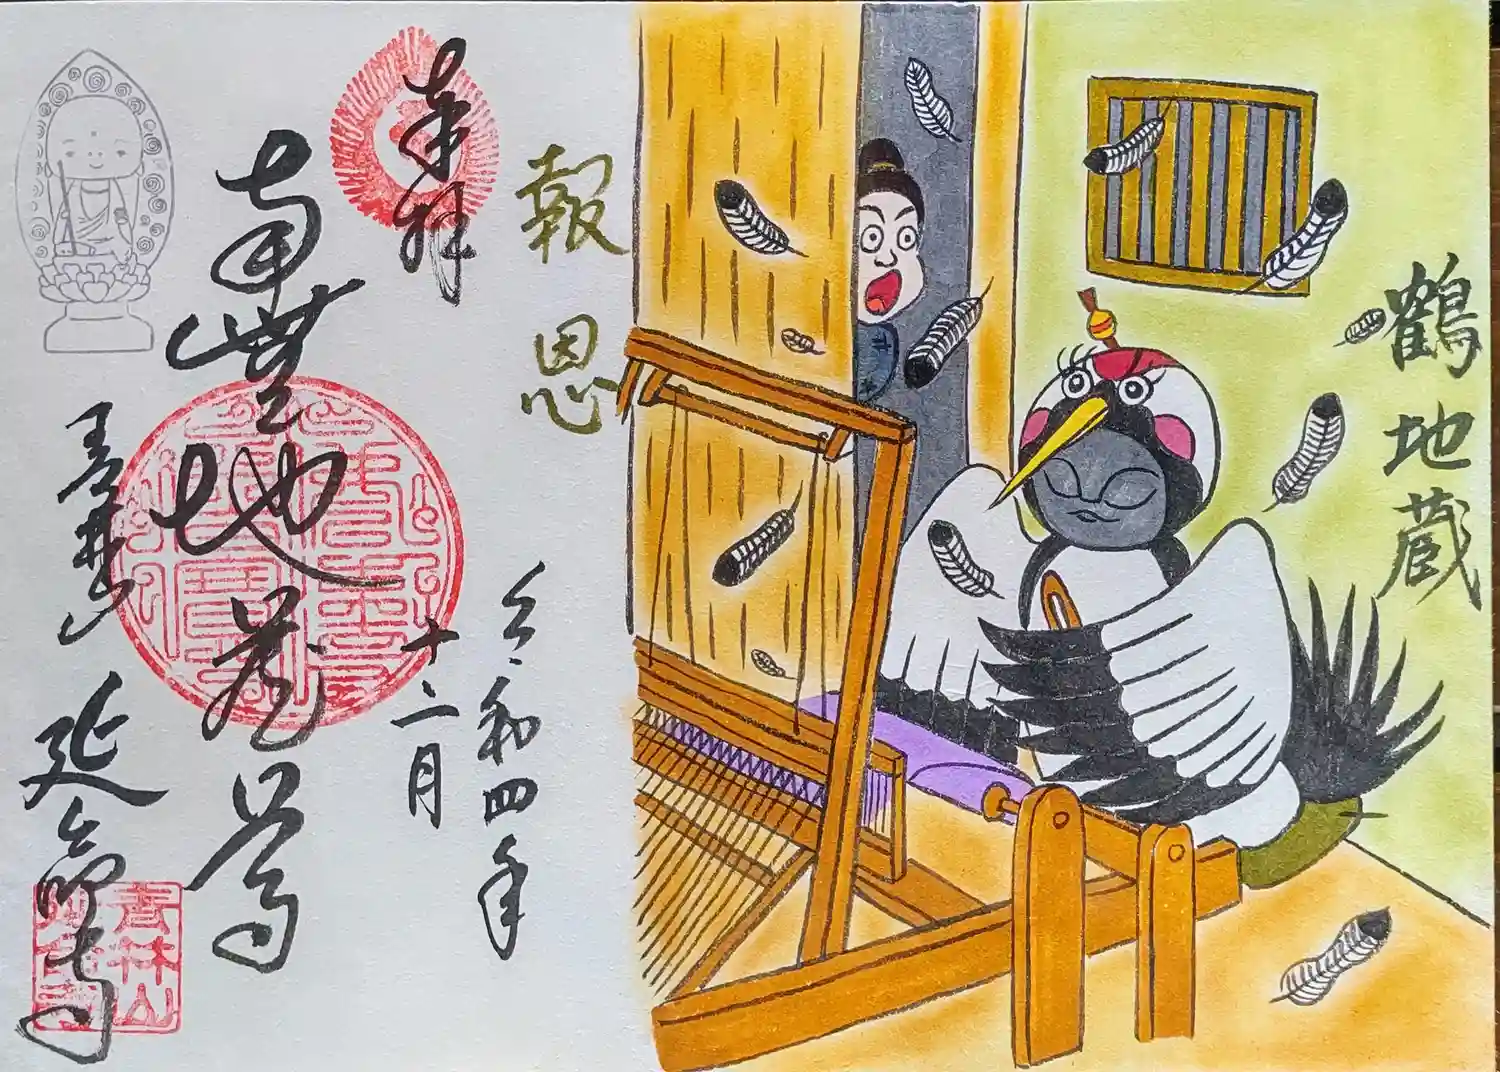 鶴地蔵
報恩
奉拝
令和四年
十二月
南無地蔵尊
延命寺